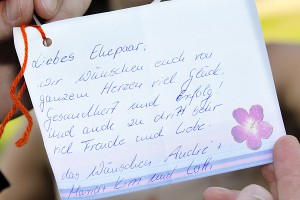 Liebes Ehepaar,
Wir wünschen euch von
ganzem Herzen viel Glück,
gesundheit und Erfolg!
und auch zu dritt sehr
viel Freude und Liebe.
das wünschen